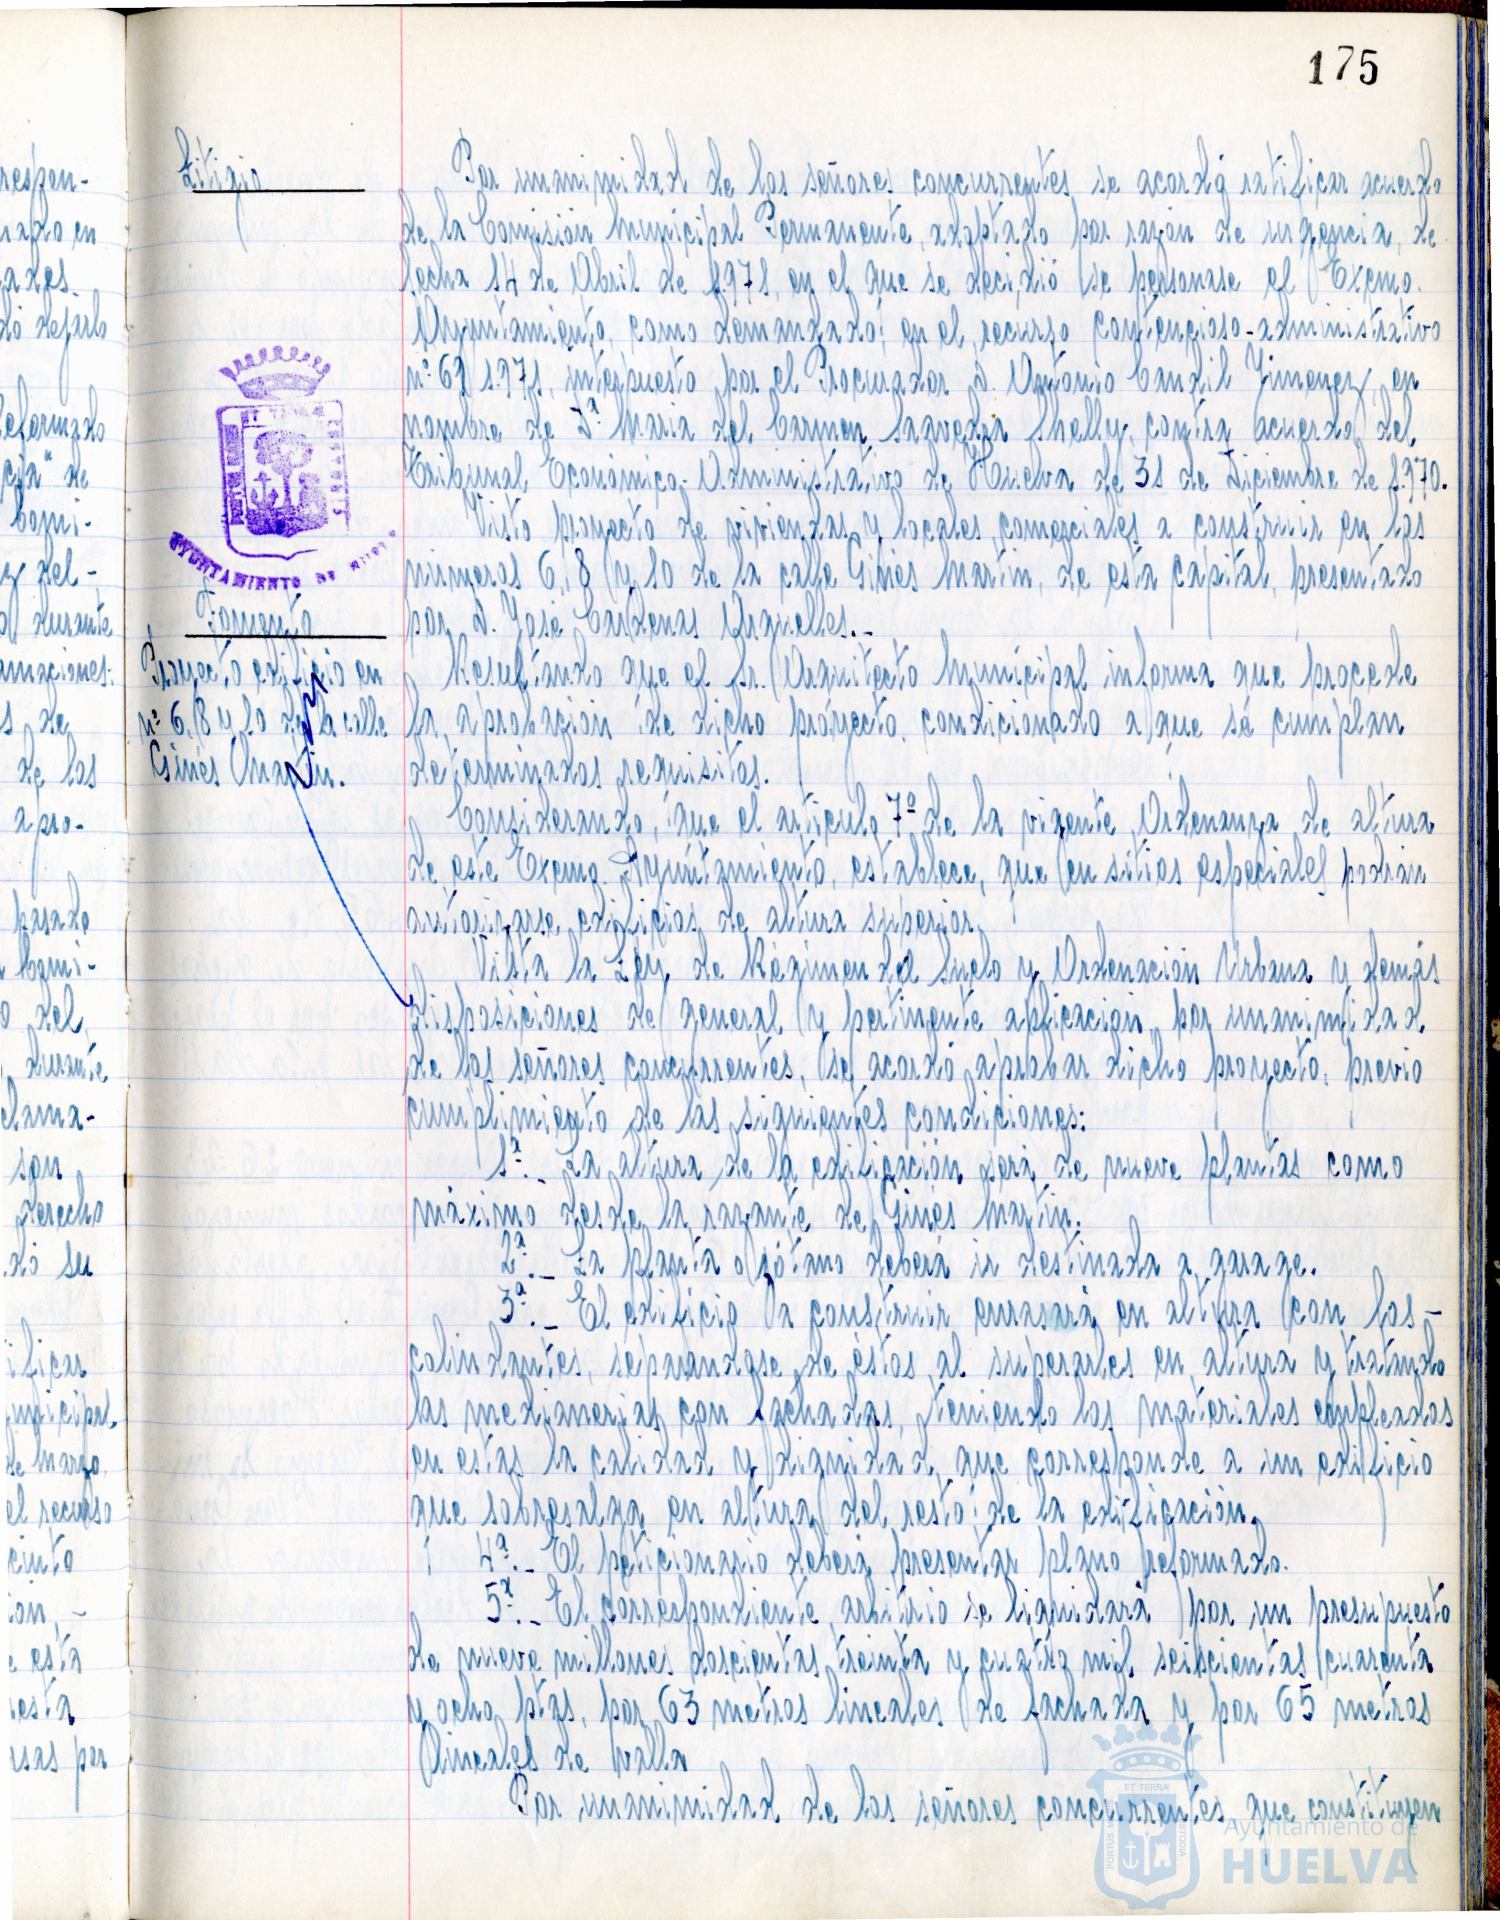 175
Litigio
Por unanimidad de los señores concurrentes se acordó ratificar acuerdo
de la Comisión Municipal Permanente, adoptado por razón de urgencia, de
fecha 14 de Abril de 1.971, en el que se decidió se personase el Excmo.
Ayuntamiento, como demandado, en el recurso contencioso-administrativo
nº 69 1.971, interpuesto por el Procurador D. Antonio Candil Jimenez, en
nombre de Dª Maria del Carmen Saavedra Shelly, contra acuerdo del
Tribunal Económico-Administrativo de Huelva de 31 de Diciembre de 1.970.
AYUNTAMIENTO DE HUELVA
Fomento
Proyecto edificio en
nº 6, 8 y 10 de la calle
Ginés Martin.
Visto proyecto de viviendas y locales comerciales a construir en los
números 6, 8 y 10 de la calle Ginés Martin, de esta capital, presentado
por D. José Cardenas Arguelles.-
Resultando que el Sr. Arquitecto Municipal informa que procede
la aprobación de dicho proyecto, condicionado a que se cumplan
determinados requisitos.
Considerando, que el articulo 7º de la vigente Ordenanza de altura
de este Excmo. Ayuntamiento, establece, que en sitios especiales podrán
autorizarse edificios de altura superior.
Vista la Ley de Régimen del Suelo y Ordenación Urbana y demás
disposiciones de general y pertinente aplicación, por unanimidad
de los señores concurrentes, se acordó aprobar dicho proyecto, previo
cumplimiento de las siguientes condiciones:
1ª.- La altura de la edificación será de nueve plantas como
máximo desde la rasante de Ginés Martín.
2ª.- La planta o sótano deberá ir destinada a garage.
3ª.- El edificio a construir enrasará en altura con los-
colindantes, separandose de éstos al superarles en altura y tratando
las medianerias con fachadas, teniendo los materiales empleados
en estas la calidad y dignidad que corresponde a un edificio
que sobresalga en altura del resto de la edificación.
4ª.- El peticionario deberá presentar plano reformado.
5ª.- El correspondiente arbitrio se liquidará por un presupuesto
de nueve millones doscientas treinta y cuatro mil seiscientas cuarenta
y ocho ptas, por 63 metros lineales de fachada y por 65 metros
lineales de valla
Por unanimidad de los señores concurrentes, que constituyen
Ayuntamiento de
HUELVA